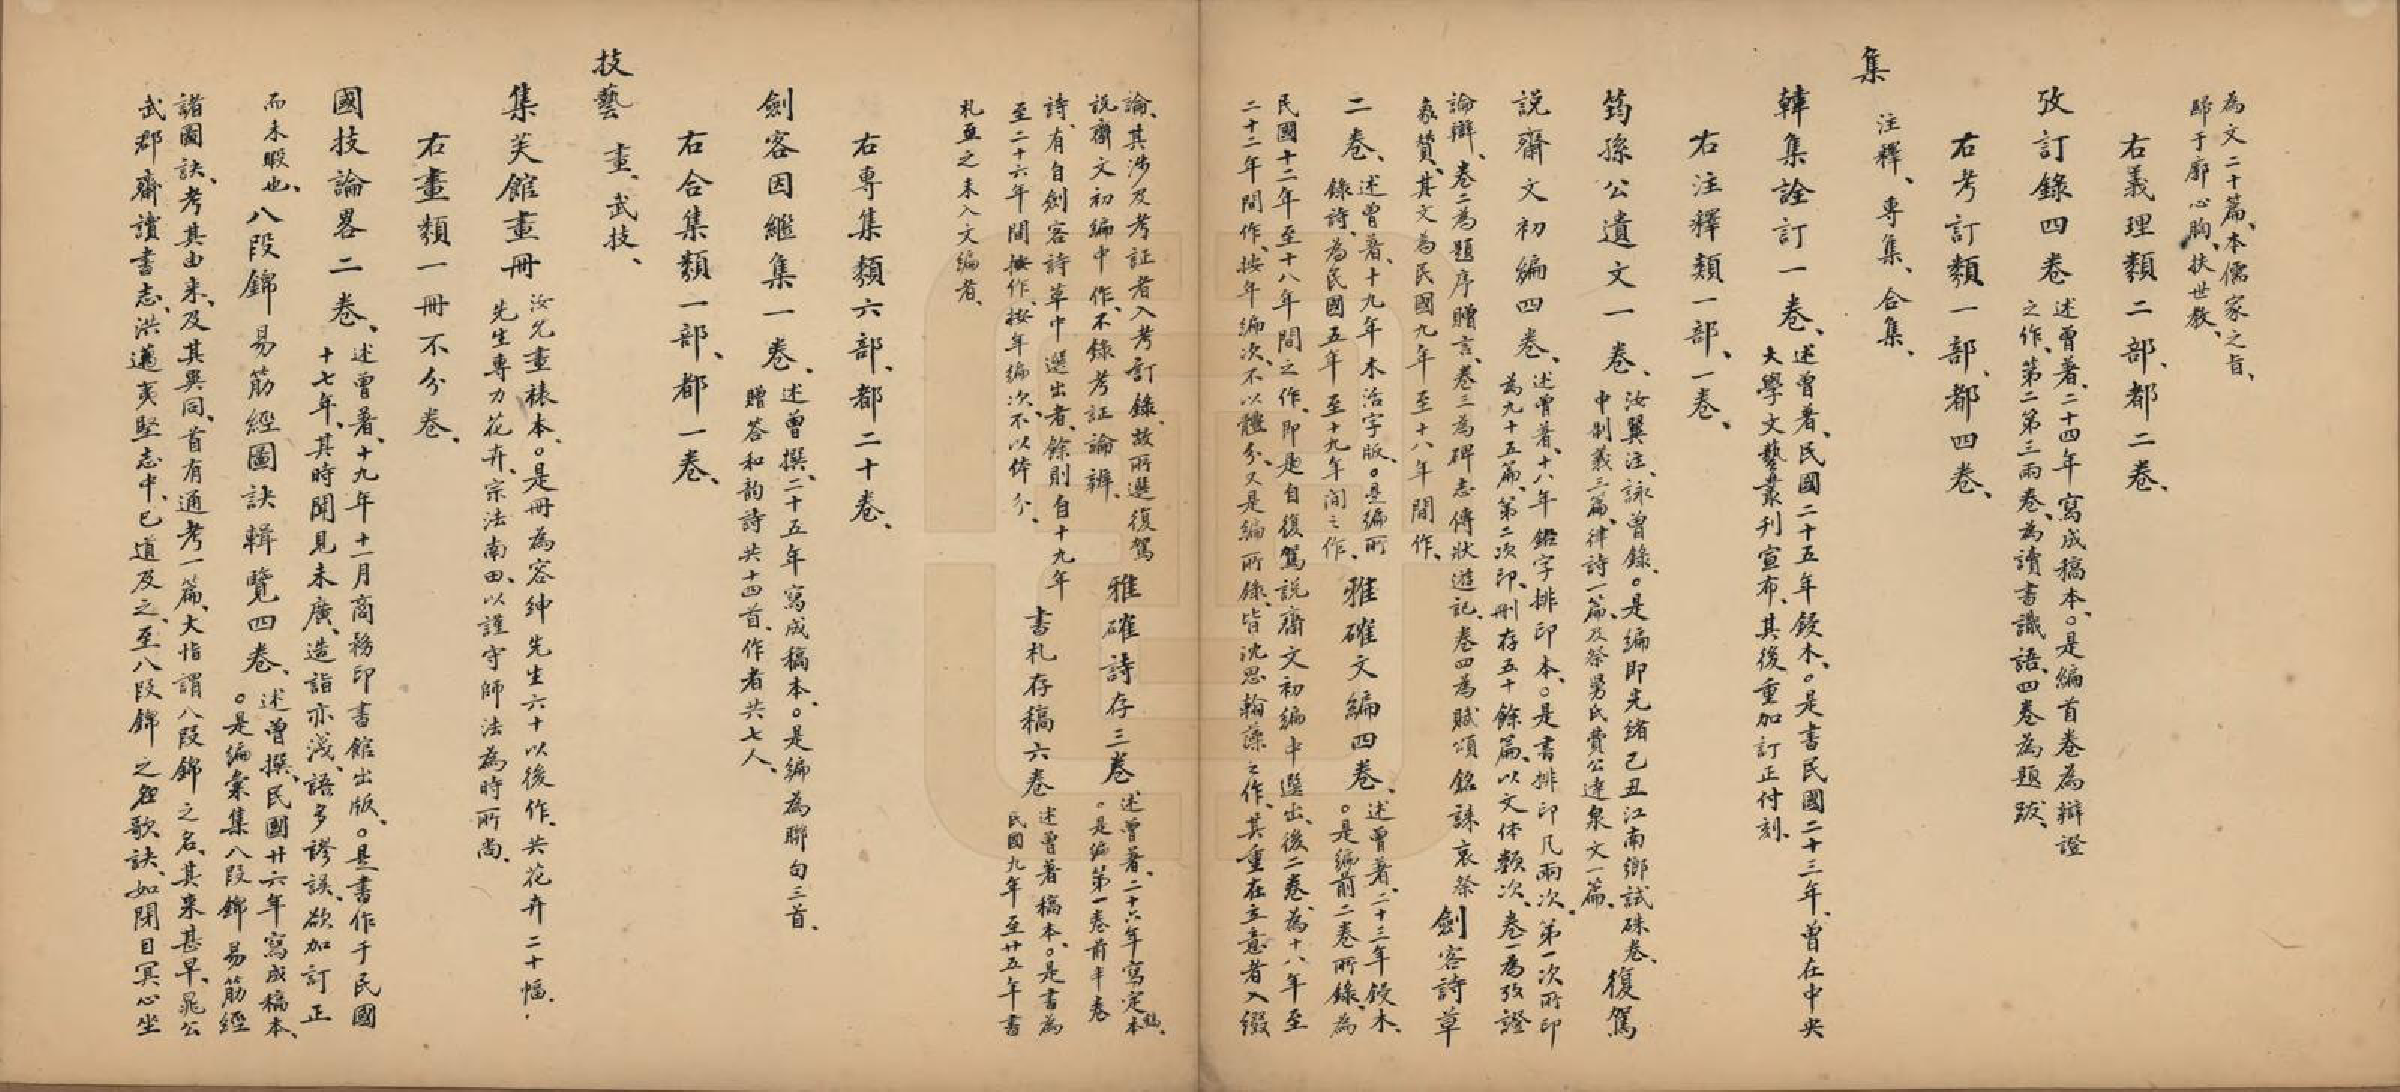 為文二十篇、本儒家之旨、
歸于廓心胸、扶世教、
右義理類二部、都二卷、
攷訂錄四卷
述曾著、二十四年寫成稿本、○是編首卷為辯證
之作、第二第三兩卷為讀書識語、四卷為題跋、
右考訂類一部、都四卷、
集
注釋、專集、合集、
韓集詮訂一卷、
述曾著、民國二十五年鉛本、○是書民國二十三年、曾在中央
大學文藝叢刊宣布、其後重加訂正付刻、
右注釋類一部、一卷、
筠孫公遺文一卷、
汝翼注、詠曾錄、○是編即光緒己丑江南鄉試硃卷、
中制義三篇、律詩一篇、及祭舅氏費公達泉文一篇、
復駕
說齋文初編四卷、
述曾著、十八年鉛字排印本、○是書排印凡兩次、第一次所印
為九十五篇、第二次印、刪存五十餘篇、以文体類次、卷一為攷證
論辯、卷二為題序贈言、卷三為碑志傳狀遊記、卷四為賦頌銘誄哀祭
象贊、其文為民國九年至十八年間作、
劍客詩草
二卷、
述曾著、十九年木活字版、○是編所
錄詩、為民國五年至十九年間之作、
雅確文編四卷、
述曾著、二十三年鉛本、
○是編前二卷所錄、為
民國十二年至十八年間之作、即是自復駕說齋文初編中選出、後二卷、為十八年至
二十二年間作、按年編次、不以體分、又是編所錄、皆沈思翰藻之作、其重在立意者入綴
論、其涉及考証者入考訂錄、故所選復駕
說齋文初編中作、不錄考証論辨、
雅確詩存三卷
述曾著、二十六年寫定本、
○是編第一卷前半卷
詩、有自劍客詩草中選出者、餘則自十九年
至二十六年間按作、按年編次、不以体分、
書札存稿六卷
述曾著稿本、○是書為
民國九年至廿五年書
札亟之未入文編者、
右專集類六部、都二十卷、
劍客因繼集一卷、
述曾撰、二十五年寫成稿本、○是編為聯句三首、
贈答和韵詩共十四首、作者共七人、
右合集類一部、都一卷、
技藝
畫、武技、
集芙館畫冊
汝允畫裱本、○是冊為容紳先生六十以後作、共花卉二十幅、
先生專力花卉、宗法南田、以謹守師法為時所尚、
右畫類一冊不分卷、
國技論畧二卷、
述曾著、十九年十一月商務印書館出版、○是書作于民國
十七年、其時聞見未廣、造詣亦淺、語多謬誤、欲加訂正
而未暇也、
八段錦易筋經圖訣輯覽四卷、
述曾撰、民國廿六年寫成稿本、
○是編彙集八段錦易筋經
諸圖訣、考其由來、及其異同、首有通考一篇、大恉謂八段錦之名、其來甚早、晁公
武郡齋讀書志、洪邁夷堅志中、已道及之、至八段錦之名歌訣、如閉目冥心坐